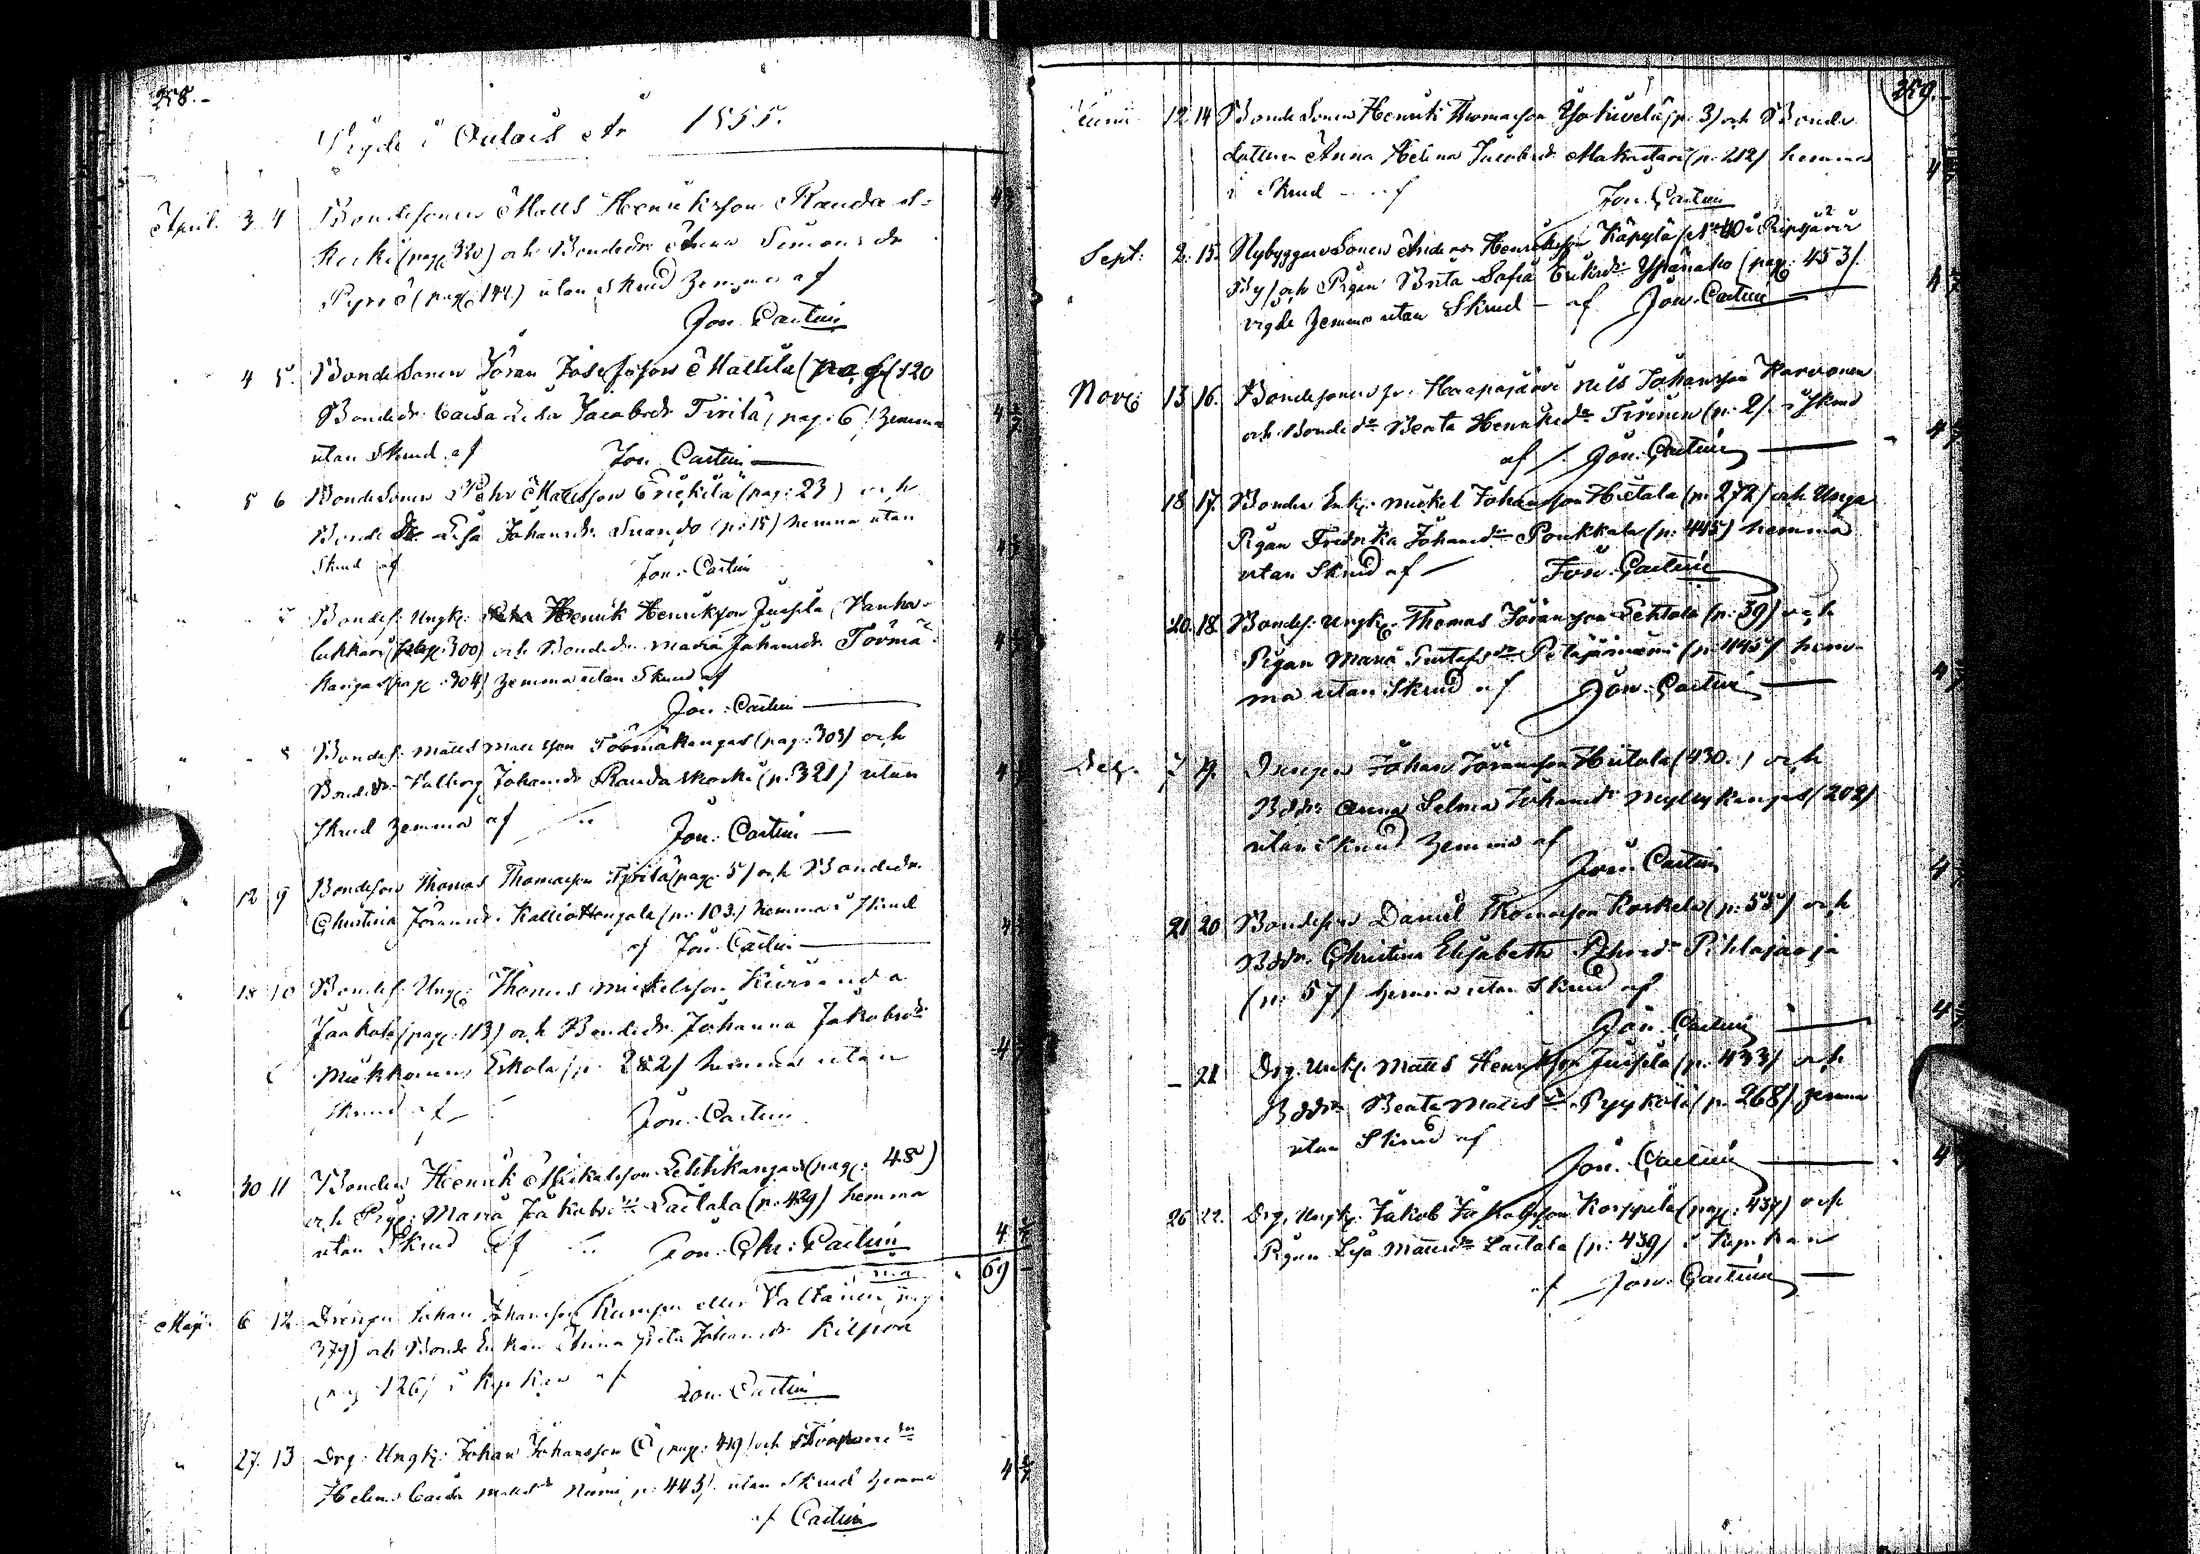 258.-
Vigde i Oulais år 1855.
April. 3 4 Bondesonen Matts Henriksson Rauda s-
koski (pag: 320) och Bondedr Anna Simonsdr
Pyrrö (pag: 144) utan Skrud hemma af
Jon. Castrén
4 5. Bondesonen Jöran Josefsson Mattila (pag: 120
Bondedr. Caisa Lisa Jacobsdr Tirilä, pag: 6) hemma
utan Skrud af Jon. Castrén
5 6 Bondesonen Pehr Mattsson Erickilä (pag: 23) och
Bonde Dr. Lisa Johansdr. Suando (p: 15) hemma utan
Skrud af Jon. Castrén
" " 7 Bondes. Ungk. Henrik Henriksson Jussila (Vanha-
lukkari (pag: 300) och Bondedr. Maria Johansdr Törmä-
kangas (pag: 304) hemma utan Skrud af
Jon. Castrén
" " 8 Bondes. Matts Mattsson Törmäkangas (pag: 303) och
Bondedr. Valborg Johansdr Raudaskoski (p. 321) utan
Skrud hemma af Jon. Castrén
" 12 9 Bondeson Thomas Thomasson Tirilä (pag: 5) och Bondedr.
Christina Jöransdr. Kalliokengola (p: 103.) hemma i Skrud
af Jon. Castrén
" 18 10 Bondes. Ungk. Thomas Mickelsson Kiviranda
Jaakola (pag: 113) och Bondedr. Johanna Jakobsdr
Mickkonen, Eskola (p. 282) hemma utan
Skrud af Jon. Castrén
" 30 11 Bonden Henrik Mickelsson Lehtikangas (pag: 48)
och Pig: Maria Jakobsdr Laitala (p: 429) hemma
utan Skrud af Jon. Chr: Castrén
69
Maji 6 12 Drengen Johan Johansson Kumpu eller Valtanen, pag:
379) och Bonde Enkan Anna Greta Johansdr Kilpua
pag: 126) i kyrkan af Jon. Castrén
" 27. 13 Drg: Ungk: Johan Johansson (pag: 419) och
Helena Caisa Mattsdr Niemi, p: 443). utan Skrud hemma
af Castrén
259.-
Junii 12 14 Bondesonen Henrik Thomasson Yokivelä (p: 3) och Bonde
dottren Anna Helena Jacobsdr Makratari (p: 212) hemma
i Skrud af Jon. Castrén
Sept: 2. 15. Nybyggaresonen Anders Henriksson Käpylä (N:o 40 i Ripisjärvi
By) och Pigan Brita Safia Eriksdr. Ypäraho (pag: 453).
vigde hemma utan Skrud af Jon. Castrén
Nov: 13 16. Bondesonen fr. Haapajärvi Nils Johansson Karvonen
och Bondedr. Beata Henriksdr. Tirinen (p. 2). i Skrud
af Jon. Castrén
18 17. Bonden Enk. Mickel Johansson Hietala (p: 272) och Unga
Pigan Fredrika Johansdr. Poukkala (p: 445) hemma
utan Skrud af Jon. Castrén
20. 18. Bondes. Ungk. Thomas Jöransson Lehtola (p: 39) och
Pigan Maria Gustafsdr. Petäjäniemi (p: 445) hem-
ma utan Skrud af Jon. Castrén
Dec. 7 19. Drengen Johan Jöransson Hietala (430.) och
Bddr. Anna Selma Johansdr Myllykangas (202)
utan Skrud hemma af
Jon. Castrén
21 20 Bondeson Daniel Thomasson Koskela (p: 55) och
Bddr. Christina Elisabeth Pehrsdr Pihlajaoja
(p: 57) hemma utan Skrud af
Jon. Castrén
- 21 Drg. Unk. Matts Henriksson Jussila (p: 433) och
Bddr. Beata Mattsdr. Pyykölä (p. 268) hemma
utan Skrud af
Jon. Castrén
26 22. Drg. Ungk. Jakob Jakobsson Korppila (pag: 437) och
Pigan Lisa Mattsdr Laitala (p: 439) i kyrkan
af Jon. Castrén